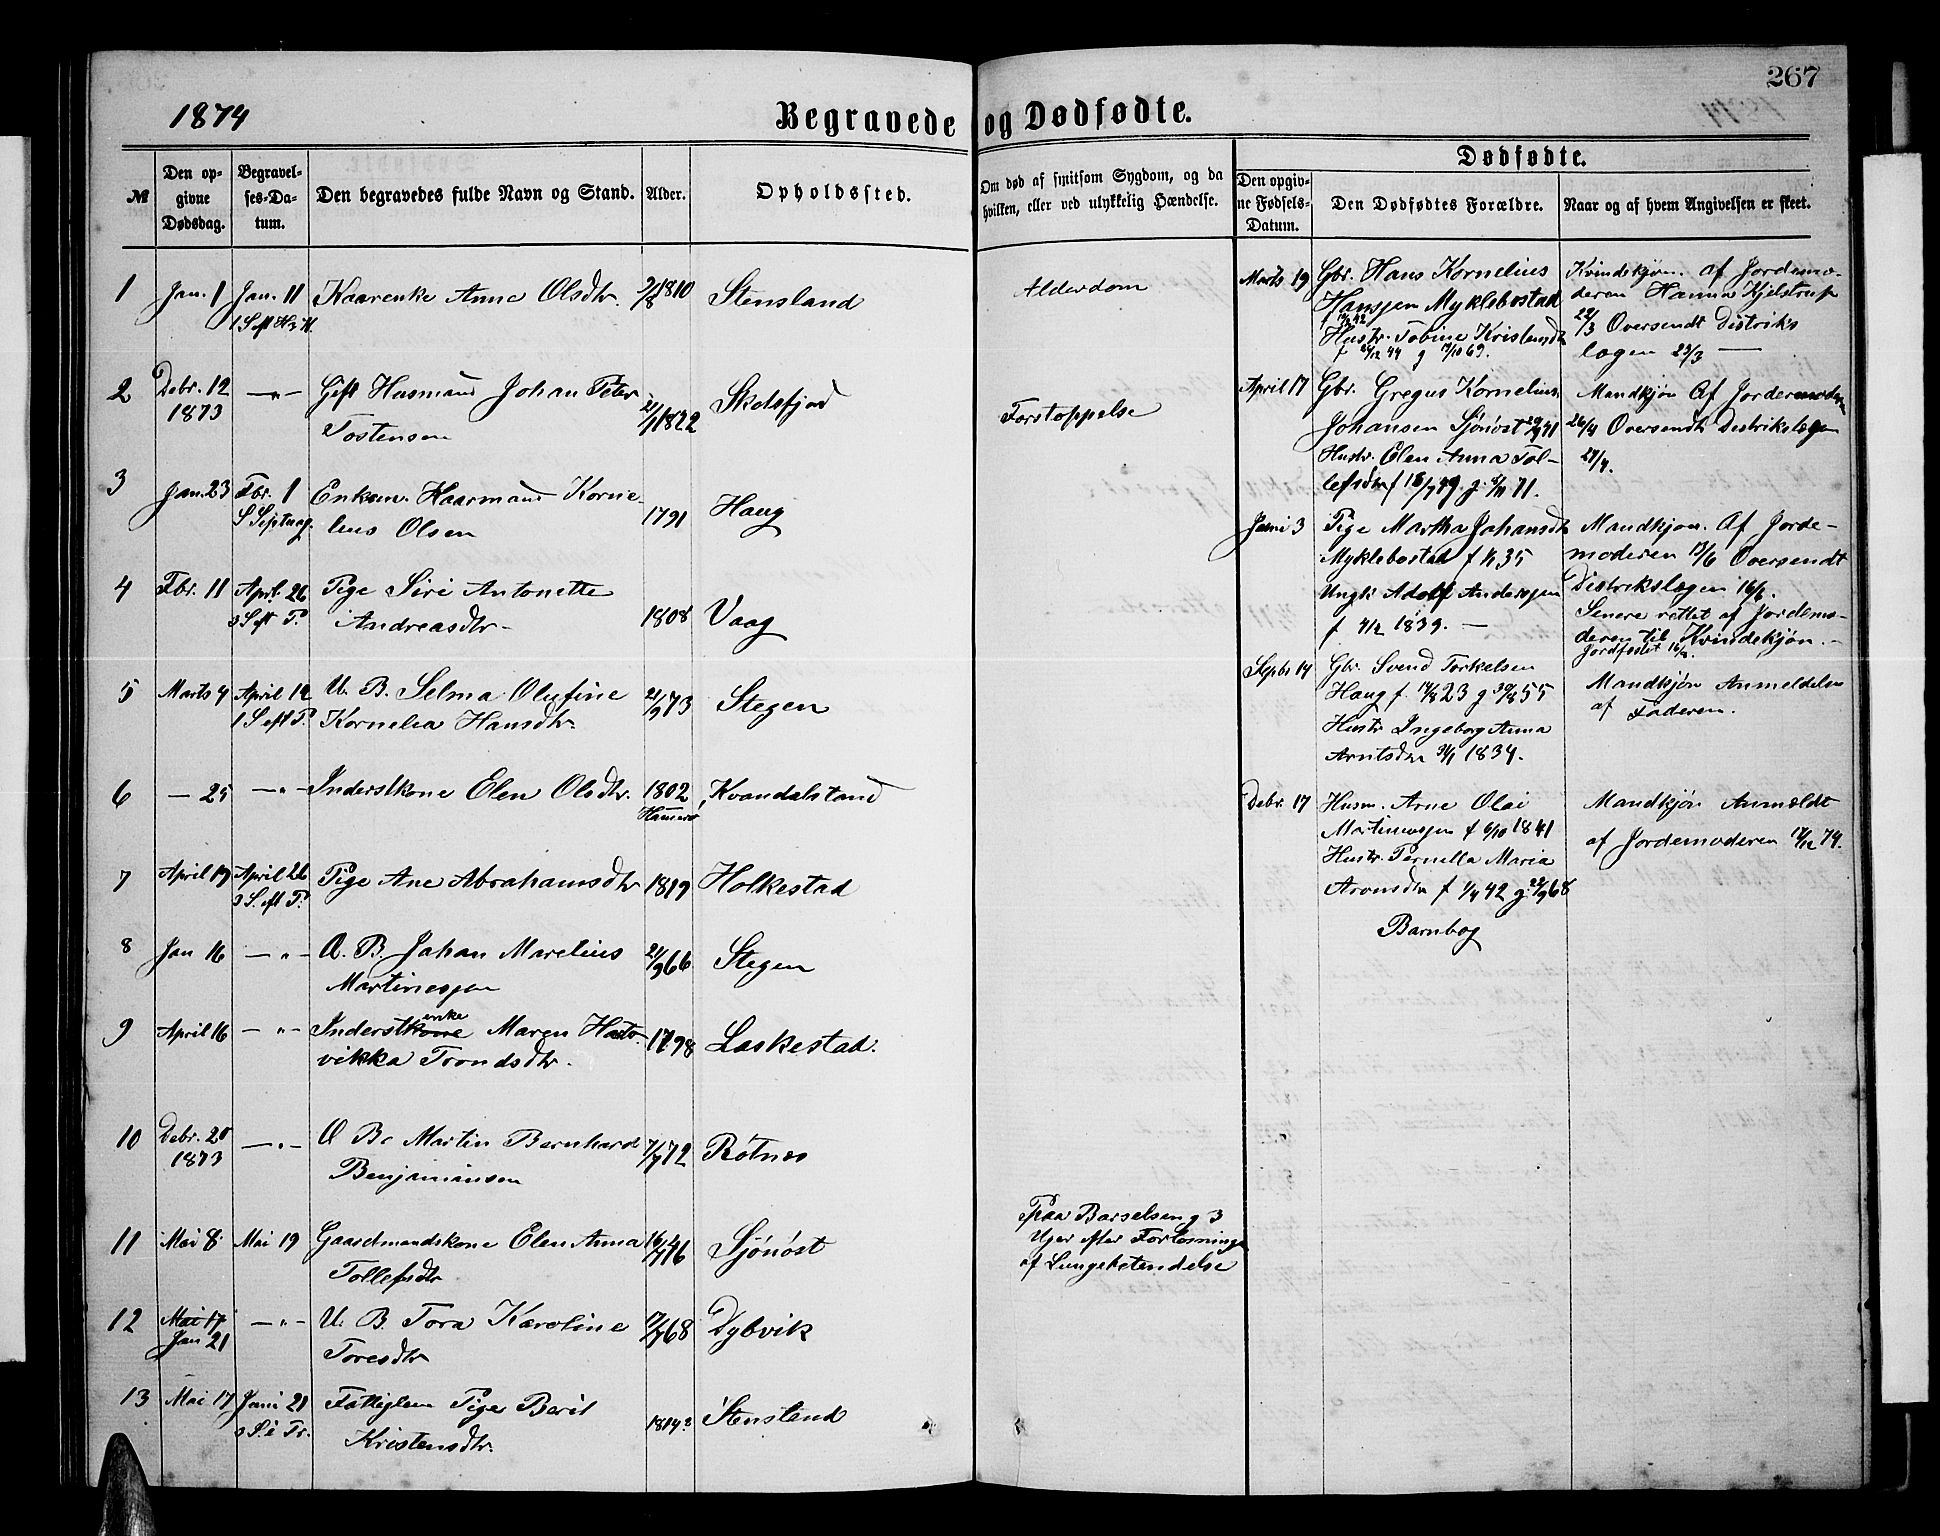 267
1874
Begravede og Dødfødte.
№
Den op-
givne
Dødsdag.
Begravel-
ses-Da-
tum.
Den begravedes fulde Navn og Stand.
Alder.
Opholdssted.
Om død af smitsom Sygdom, og da
hvilken, eller ved ulykkelig Hændelse.
Dødfødte.
Den opgiv-
ne Fødsels-
Datum.
Den Dødfødtes Forældre.
Naar og af hvem Angivelsen er skeet.
1 Jan. 1 Jan. 11 Kaarenke Anne Olsdtr. 2/8 1810 Stensland Alderdom
1 S eft H3K
2 Debr. 12 —"— Gift Husmand Johan Peter 21/1 1822 Skotsfjord Forstoppelse
1873 Tostensen
3 Jan. 23 Fbr. 1 Enkem. Haarmand Korne- 1791 Haug
S Septuag. lius Olsen
4 Fbr. 11 Apr. 26 Pige Siri Antonette 1808 Vaag
3 S eft P. Andreasdtr
5 Marts 4 April 12 U. B. Selma Olufine 21/9 73 Stegen
1 S eft P. Kornelia Hansdtr.
6 — 25 —"— Inderstkone Elen Olsdtr. 1802 Kvandalstand
Hamerø
7 April 19 April 26 Pige Ane Abrahamsdtr 1819 Holkestad
3 S. eft P.
8 Jan 16 —"— Æ. B. Johan Marelius 21/9 66 Stegen
Martinesjen
9 April 16 —"— Inderstkone enke Maren Hart- 1798 Laskestad.
vikka Trondsdtr.
10 Debr. 20 —"— Æ B. Martin Bernhard 7/7 72 Røtnes
1873 Benjaminsen
11 Mai 8 Mai 19 Gaardmandskone Elen Anna 16/7 46 Sjønøst
Tollefsdtr
Paa Barselseng 3
Uger efter Forløsninge
af Lungebetendelse
12 Mai 17 —"— U. B. Tora Karoline 9/7 68 Dybvik
Jan 21 Toresdtr
13 Mai 17 Juni 21 Fattiglem Pige Berit 1814? Stensland
3 S. e Tr. Kristensdtr.
Marts 19 Gbr. Hans Kornelius
Hansjen Myklebostad
Hustr. Tobine Kristensdtr
f 26/12 44 g 17/10 69.
Kvindekjøn. af Jordemo-
deren Hanna Kjelstrup
22/3 Oversendt Distriks
lægen 23/3 —
April 17 Gbr. Gregus Kornelius
Johansen Sjønøst 29/9 41
Hustr. Elen Anna Tol-
lefsdtr f 16/7 49 g. 8/11 71.
Mandkjøn Af Jordemoderen
26/4 Oversendt Distrikslægen
27/4.
Juni 3 Pige Martha Johansdtr
Myklebostad f 35
Ungk. Adolf Andersjen
f 4/12 1839. —
Mandkjøn. Af Jorde-
moderen 13/6 Oversendt
Distrikslægen 16/6.
Senere rettet af Jordemo-
deren til Kvindekjøn. —
Jordfæstet 16/8.
Septbr 14 Gbr. Svend Torkelsen
Haug f 14/8 23 g 30/8 55
Hustr Ingeborg Anna
Arntsdtr 31/1 1834.
Mandkjøn Anmeldelse
af Faderen.
Debr. 17 Husm. Arne Olai
Martinussjen f 6/10 1841
Hustr. Pernella Maria
Aronsdtr f 1/4 42 g. 22/9 68
Barnbog
Mandkjøn Anmeldt
af Jordemoderen 17/12 74.